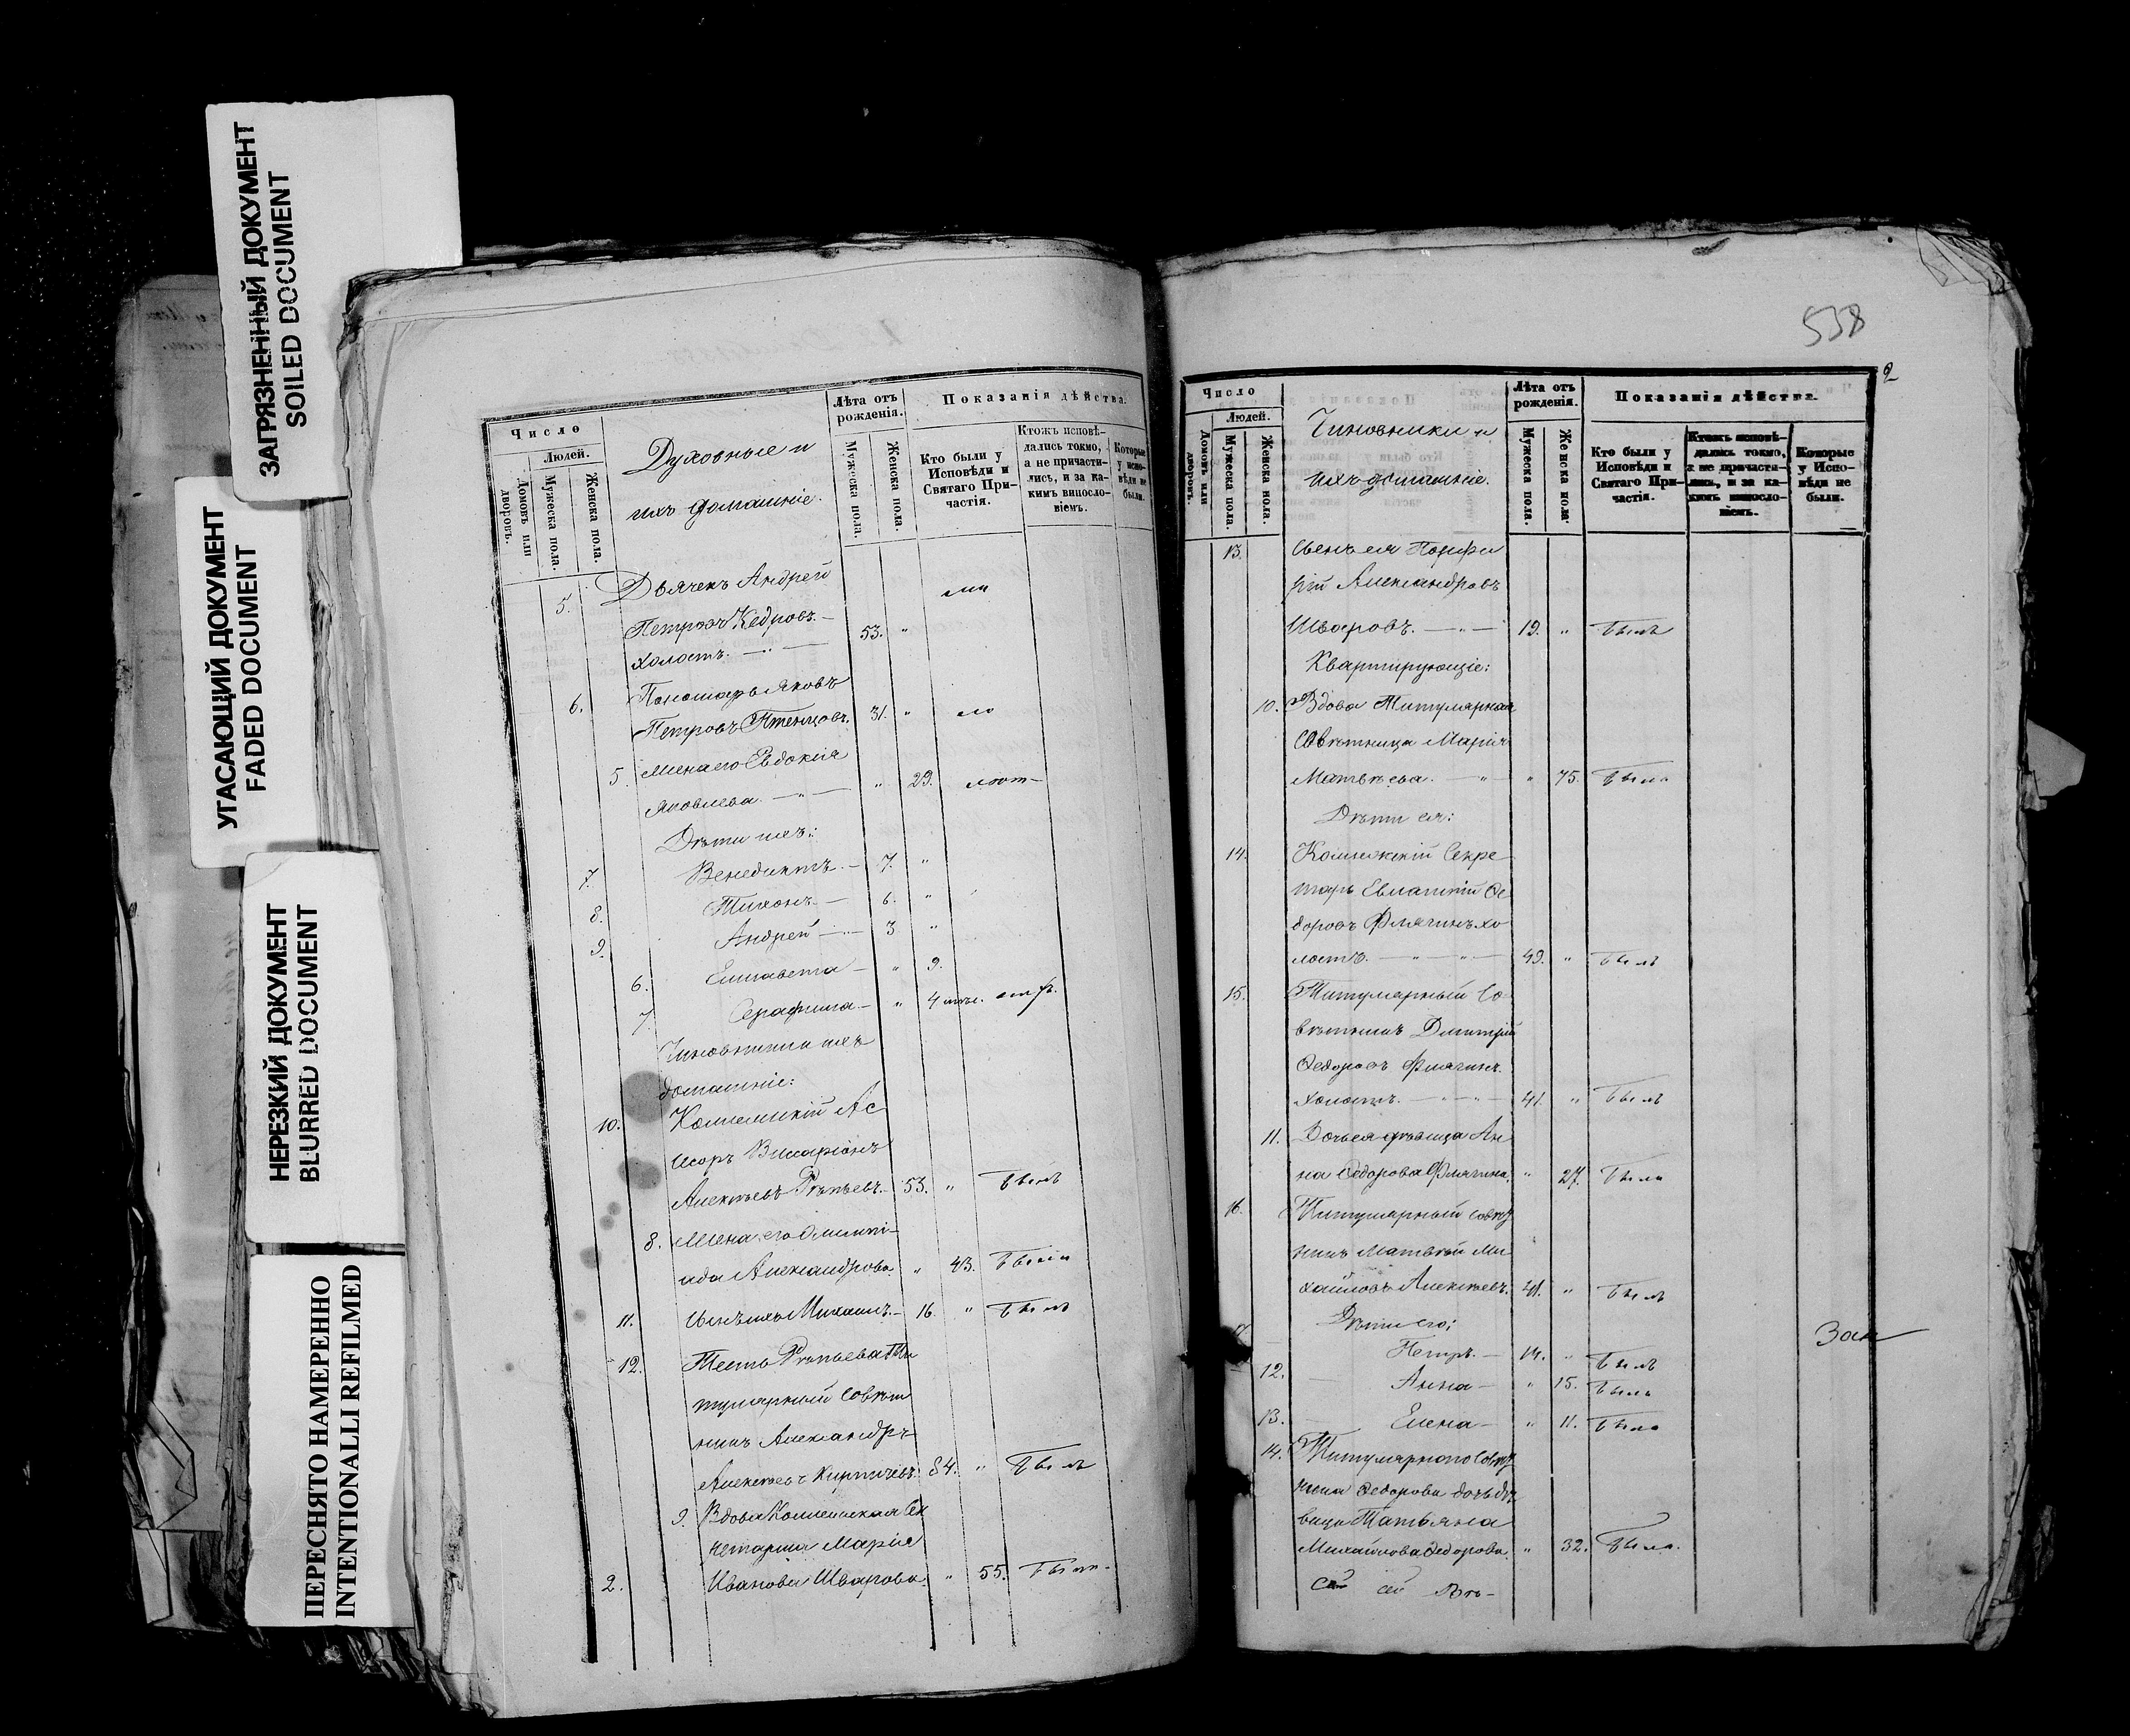 ЗАГРЯЗНЕННЫЙ ДОКУМЕНТ
SOILED DOCUMENT
УГАСАЮЩИЙ ДОКУМЕНТ
FADED DOCUMENT
НЕРЕЗКИЙ ДОКУМЕНТ
BLURRED DOCUMENT
ПЕРЕСНЯТО НАМЕРЕННО
INTENTIONALLI REFILMED
Число
Людей.
Домовъ или дворовъ.
Мужеска пола.
Женска пола.
Духовные и
ихъ домашніе.
Лѣта отъ рожденія.
Мужеска пола.
Женска пола.
Показанія дѣйства.
Кто были у Исповѣди и Святаго При-
частія.
Ктожъ исповѣ-
дались токмо,
а не причасти-
лись, и за ка-
кимъ винословіемъ.
Которые
у испо-
вѣди не
были.
5. Дьячекъ Андрей
Петровъ Кедровъ. —
холостъ. — " — 53. "
6. Пономарь Яковъ
Петровъ Птенцовъ. 31. "
5. Жена его Евдокія
Яковлева. — " — " 29.
Дѣти ихъ:
7. Венедиктъ. — 7. "
8. Тихонъ. — 6. "
9. Андрей — 3 "
6. Елисавета — " 9.
7 Серафима — " 4
Чиновники и ихъ
домашніе:
10. Коллежскій Ас
сесоръ Виссаріонъ
Алексѣевъ Рѣпьевъ. — 53. " Былъ
8. Жена его Олимпі-
ада Александрова. " 43. Была
11. Сынъ ихъ Михаилъ. — 16. " Былъ
12. Тесть Рѣпьева Ти
тулярный Совѣт
никъ Александръ
Алексѣевъ Кирпичевъ. 84. " Былъ
9. Вдова Коллежская Сек
ретарша Марія
2. Иванова Шварова. " 55. Была
538
2
Число
Людей.
Домовъ или дворовъ.
Мужеска пола.
Женска пола.
Чиновники и
ихъ домашніе.
Лѣта отъ рожденія.
Мужеска пола.
Женска пола.
Показанія дѣйства.
Кто были у
Исповѣди и
Святаго При-
частія.
Ктожъ исповѣ-
дались токмо,
а не причасти-
лись, и за ка-
кимъ винословіемъ.
Которые
у Испо-
вѣди не
были.
13. Сынъ ея Порфи
рій Александровъ
Шваровъ. — " — 19. " Былъ
Квартирующіе:
10. Вдова Титулярная
Совѣтница Марія
Матвѣева. — " — " 75. Была
Дѣти ея:
14. Коллежскій Секре
тарь Евлампій Ѳе
доровъ Флягинъ хо
лостъ. — " — " — 49. " Былъ
15. Титулярный Со
вѣтникъ Дмитрій
Ѳедоровъ Флягинъ.
холостъ. — " — " — 41. " Былъ
11. Дочь ея дѣвица Ан
на Ѳедорова Флягина. " 27. Была
16. Титулярный Совѣт
никъ Матвѣй Ми
хайловъ Алексѣевъ. 41. " Былъ
Дѣти его:
Петръ. — 14. " Былъ
12. Анна — " 15. Была
13. Елена — " 11. Была
14. Титулярнаго Совѣт
ника Ѳедорова дочь дѣ
вица Татьяна
Михайлова Ѳедорова. " 32. Была.